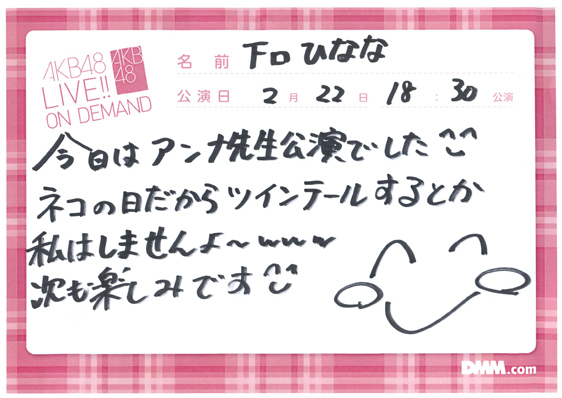 AKB48
LIVE!!
ON DEMAND
AKB
48
名前 下口ひなな
公演日 2月22日 18:30公演
今日はアンナ先生公演でした^^
ネコの日だからツインテールするとか
私はしませんよ～www
次も楽しみです^^
DMM.com